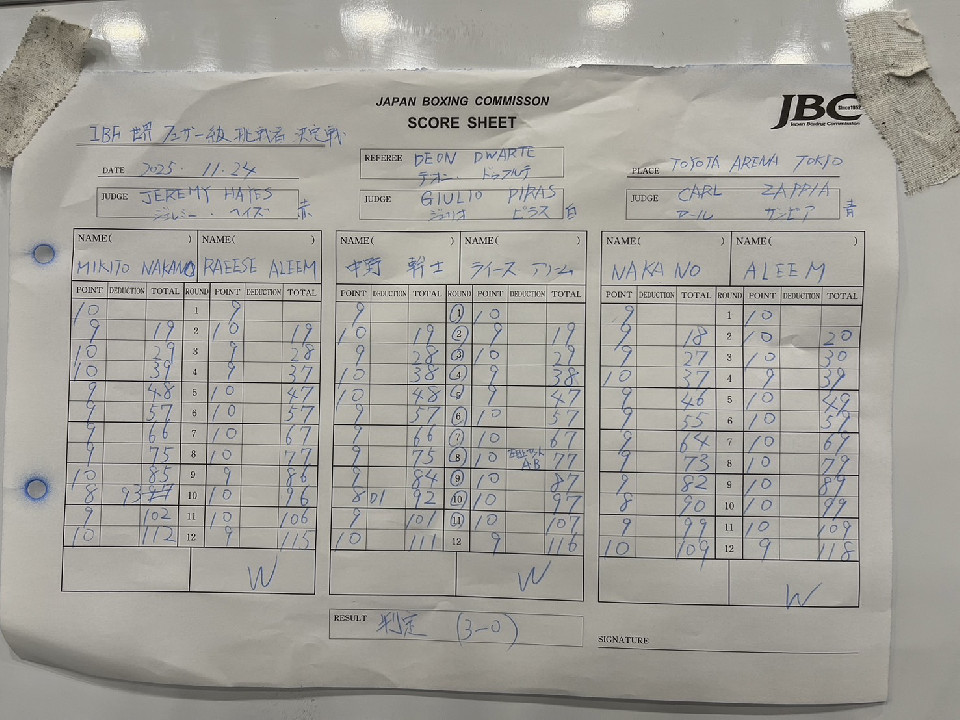 JAPAN BOXING COMMISSON
SCORE SHEET
JBC Since1952
Japan Boxing Commission
IBF 世界 フェザー級 挑戦者 決定戦
DATE 2025. 11. 24
REFEREE DEON DWARTE
PLACE TOYOTA ARENA TOKYO
JUDGE JEREMY HAYES
ジェレミー・ヘイズ 赤
JUDGE GIULIO PIRAS
ジュリオ ピラス 白
JUDGE CARL ZAPPIA
カール ザッピア 青
NAME( ) NAME( ) NAME( ) NAME( ) NAME( ) NAME( )
MIKITO NAKANO RAEESE ALEEM 中野 幹士 ライース アリーム NAKANO ALEEM
POINT DEDUCTION TOTAL ROUND POINT DEDUCTION TOTAL POINT DEDUCTION TOTAL ROUND POINT DEDUCTION TOTAL POINT DEDUCTION TOTAL ROUND POINT DEDUCTION TOTAL
10 1 9 9 1 10 9 1 10
9 19 2 10 19 10 19 2 9 19 9 18 2 10 20
10 29 3 9 28 9 28 3 10 29 9 27 3 10 30
10 39 4 9 37 10 38 4 9 38 10 37 4 9 39
9 48 5 10 47 10 48 5 9 47 9 46 5 10 49
9 57 6 10 57 9 57 6 10 57 9 55 6 10 59
9 66 7 10 67 9 66 7 10 67 9 64 7 10 69
9 75 8 10 77 9 75 8 10 77 9 73 8 10 79
10 85 9 9 86 9 84 9 10 87 9 82 9 10 89
8 93 10 10 96 8 D1 92 10 10 97 8 90 10 10 99
9 102 11 10 106 9 101 11 10 107 9 99 11 10 109
10 112 12 9 115 10 111 12 9 116 10 109 12 9 118
W W W
RESULT 判定 (3-0)
SIGNATURE